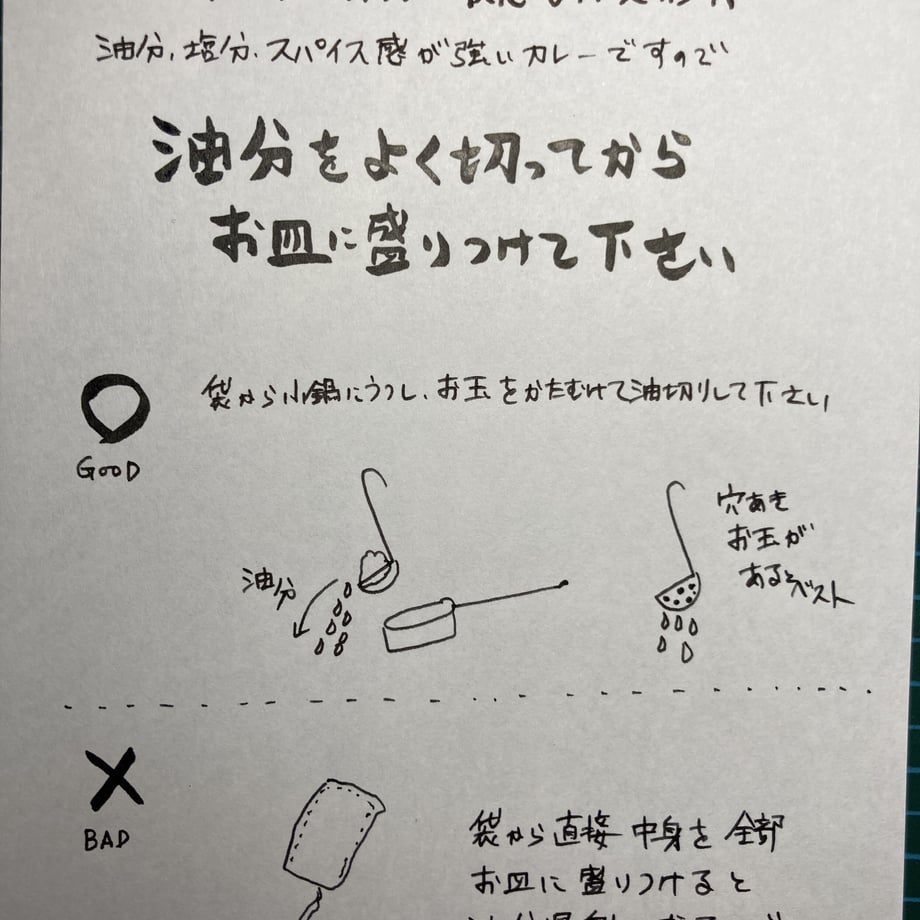 油分、塩分、スパイス感が強いカレーですので
油分をよく切ってから
お皿に盛りつけて下さい
袋から小鍋にうつし、お玉をかたむけて油切りして下さい
GOOD
油分
穴あき
お玉が
あるとベスト
BAD
袋から直接中身を全部
お皿に盛りつけると